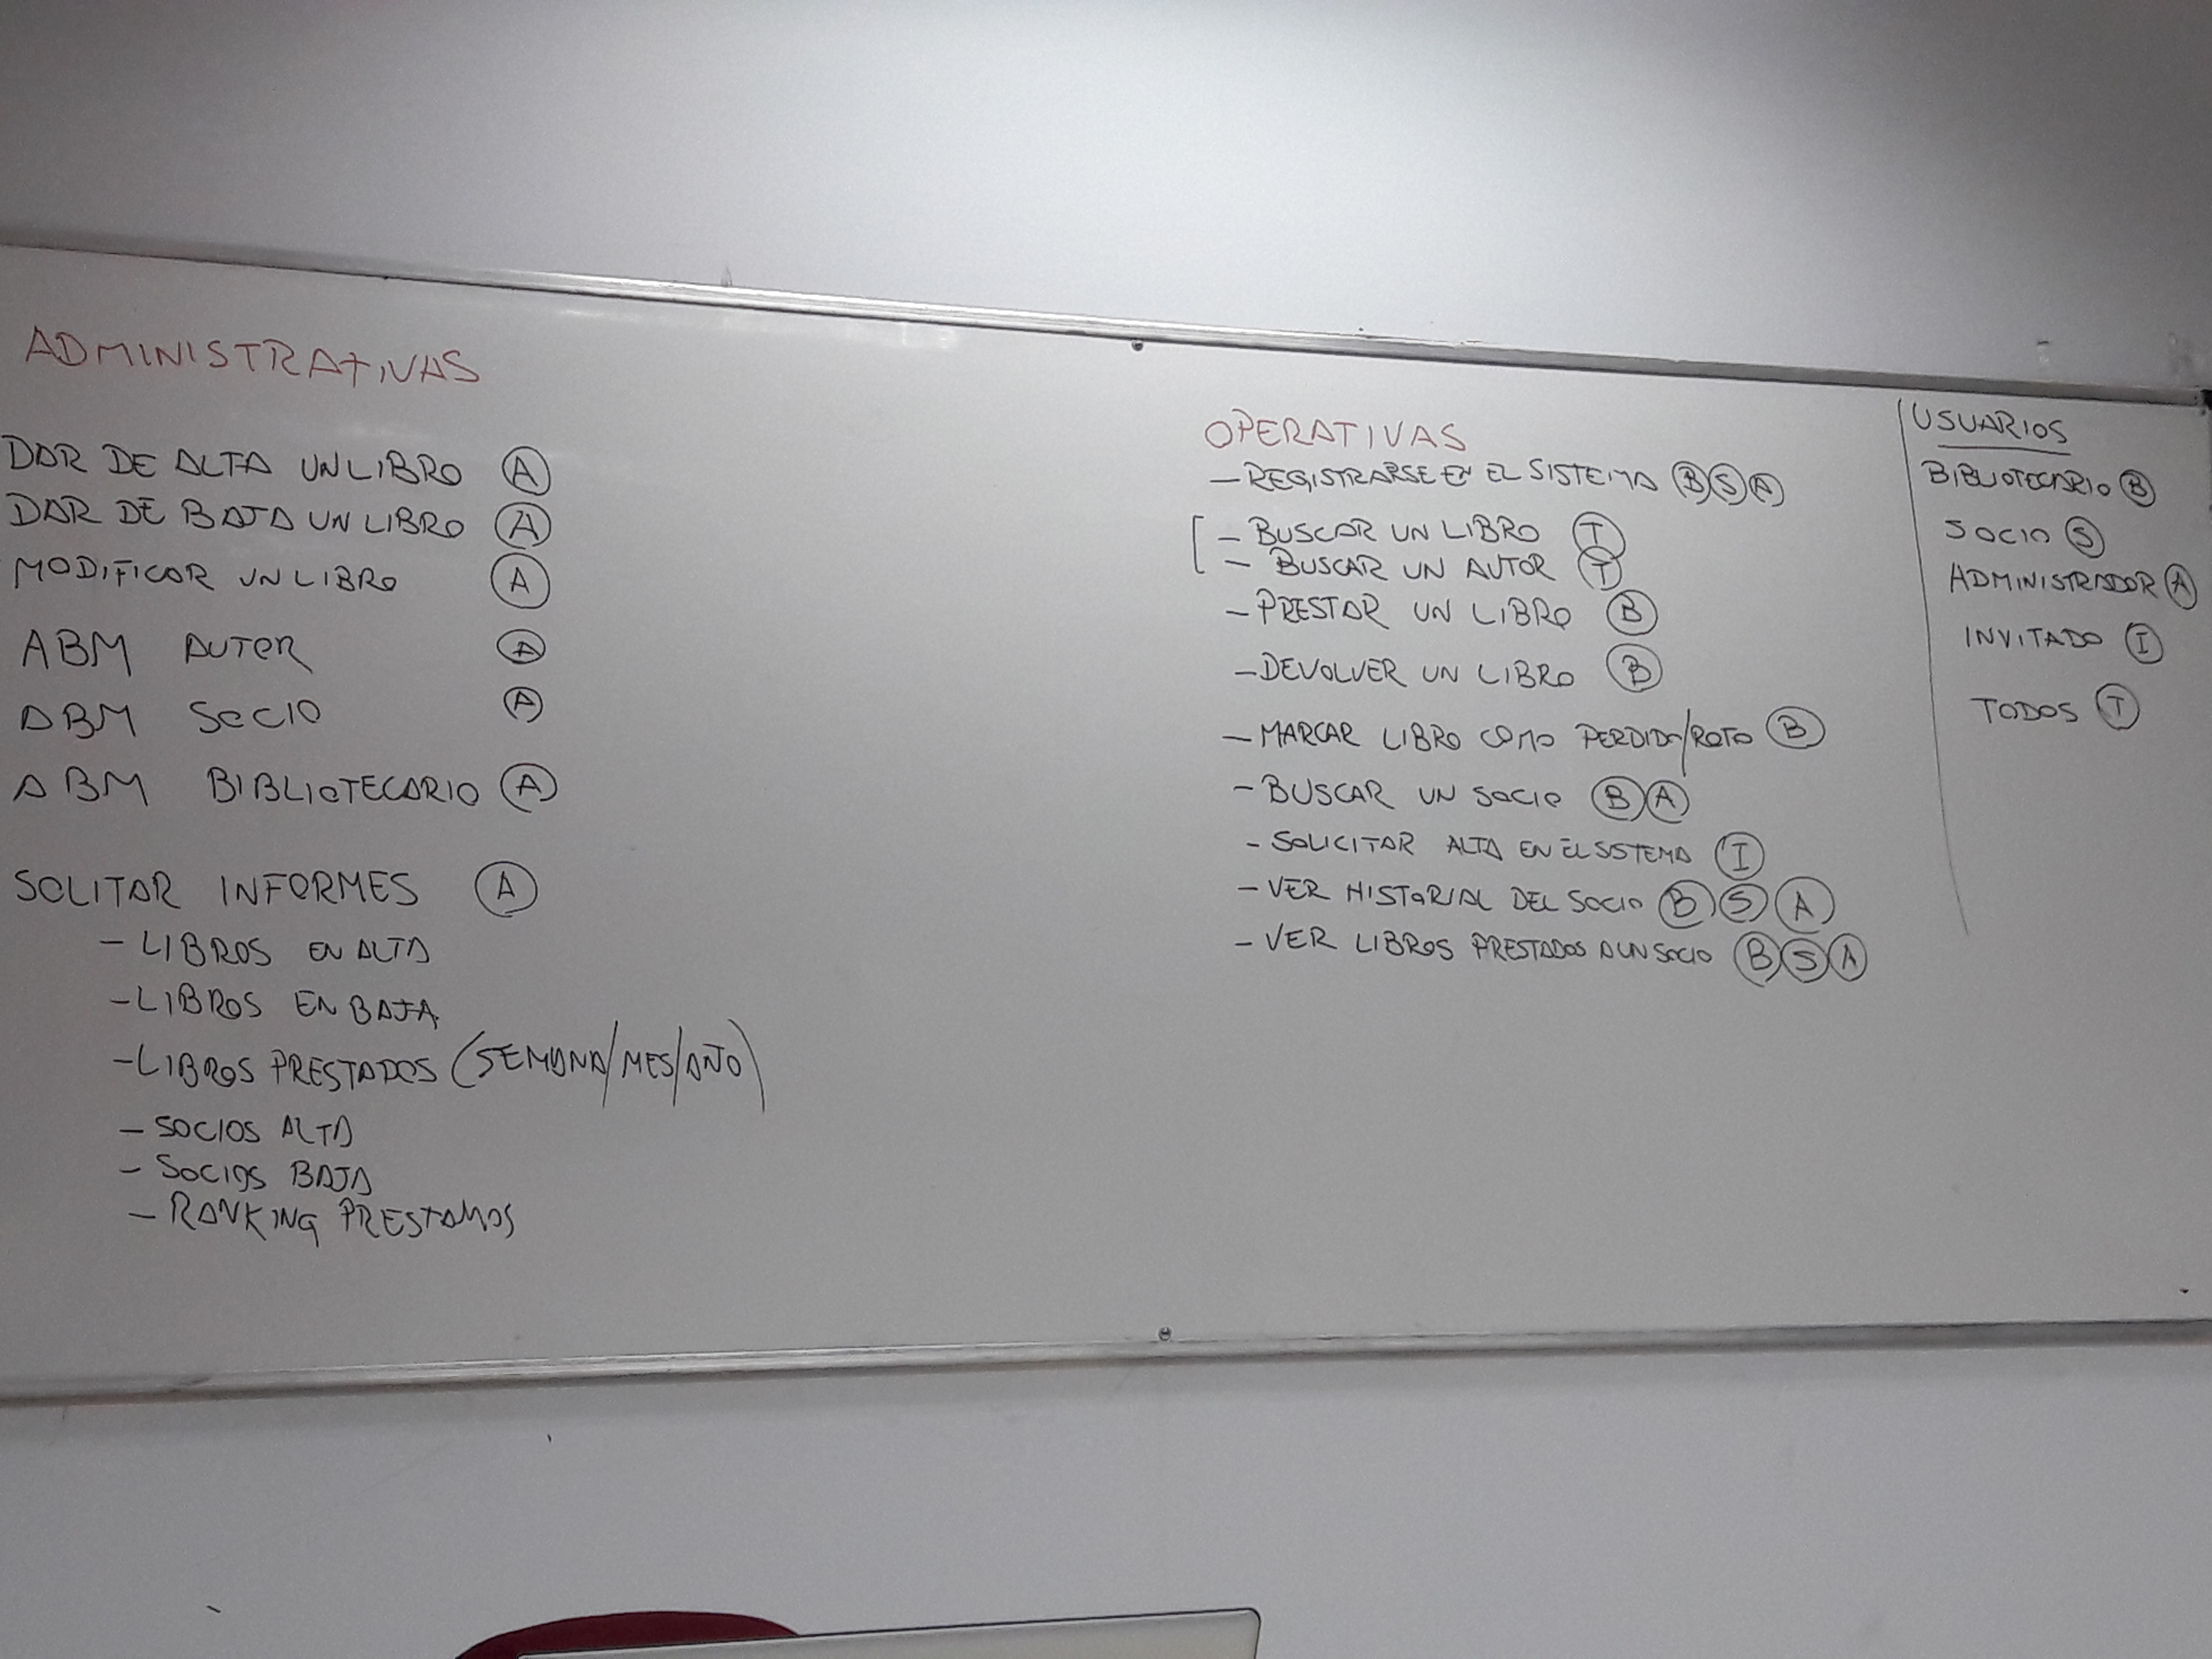 ADMINISTRATIVAS
DAR DE ALTA UN LIBRO A
DAR DE BAJA UN LIBRO A
MODIFICAR UN LIBRO A
ABM AUTOR A
ABM SOCIO A
ABM BIBLIOTECARIO A
SOLITAR INFORMES A
- LIBROS EN ALTA
- LIBROS EN BAJA
- LIBROS PRESTADOS (SEMANA/MES/AÑO)
- SOCIOS ALTA
- SOCIOS BAJA
- RANKING PRESTAMOS
OPERATIVAS
- REGISTRARSE EN EL SISTEMA B S A
- BUSCAR UN LIBRO T
- BUSCAR UN AUTOR T
- PRESTAR UN LIBRO B
- DEVOLVER UN LIBRO B
- MARCAR LIBRO COMO PERDIDO/ROTO B
- BUSCAR UN SOCIO B A
- SOLICITAR ALTA EN EL SISTEMA I
- VER HISTORIAL DEL SOCIO B S A
- VER LIBROS PRESTADOS A UN SOCIO B S A
USUARIOS
BIBLIOTECARIO B
SOCIO S
ADMINISTRADOR A
INVITADO I
TODOS T